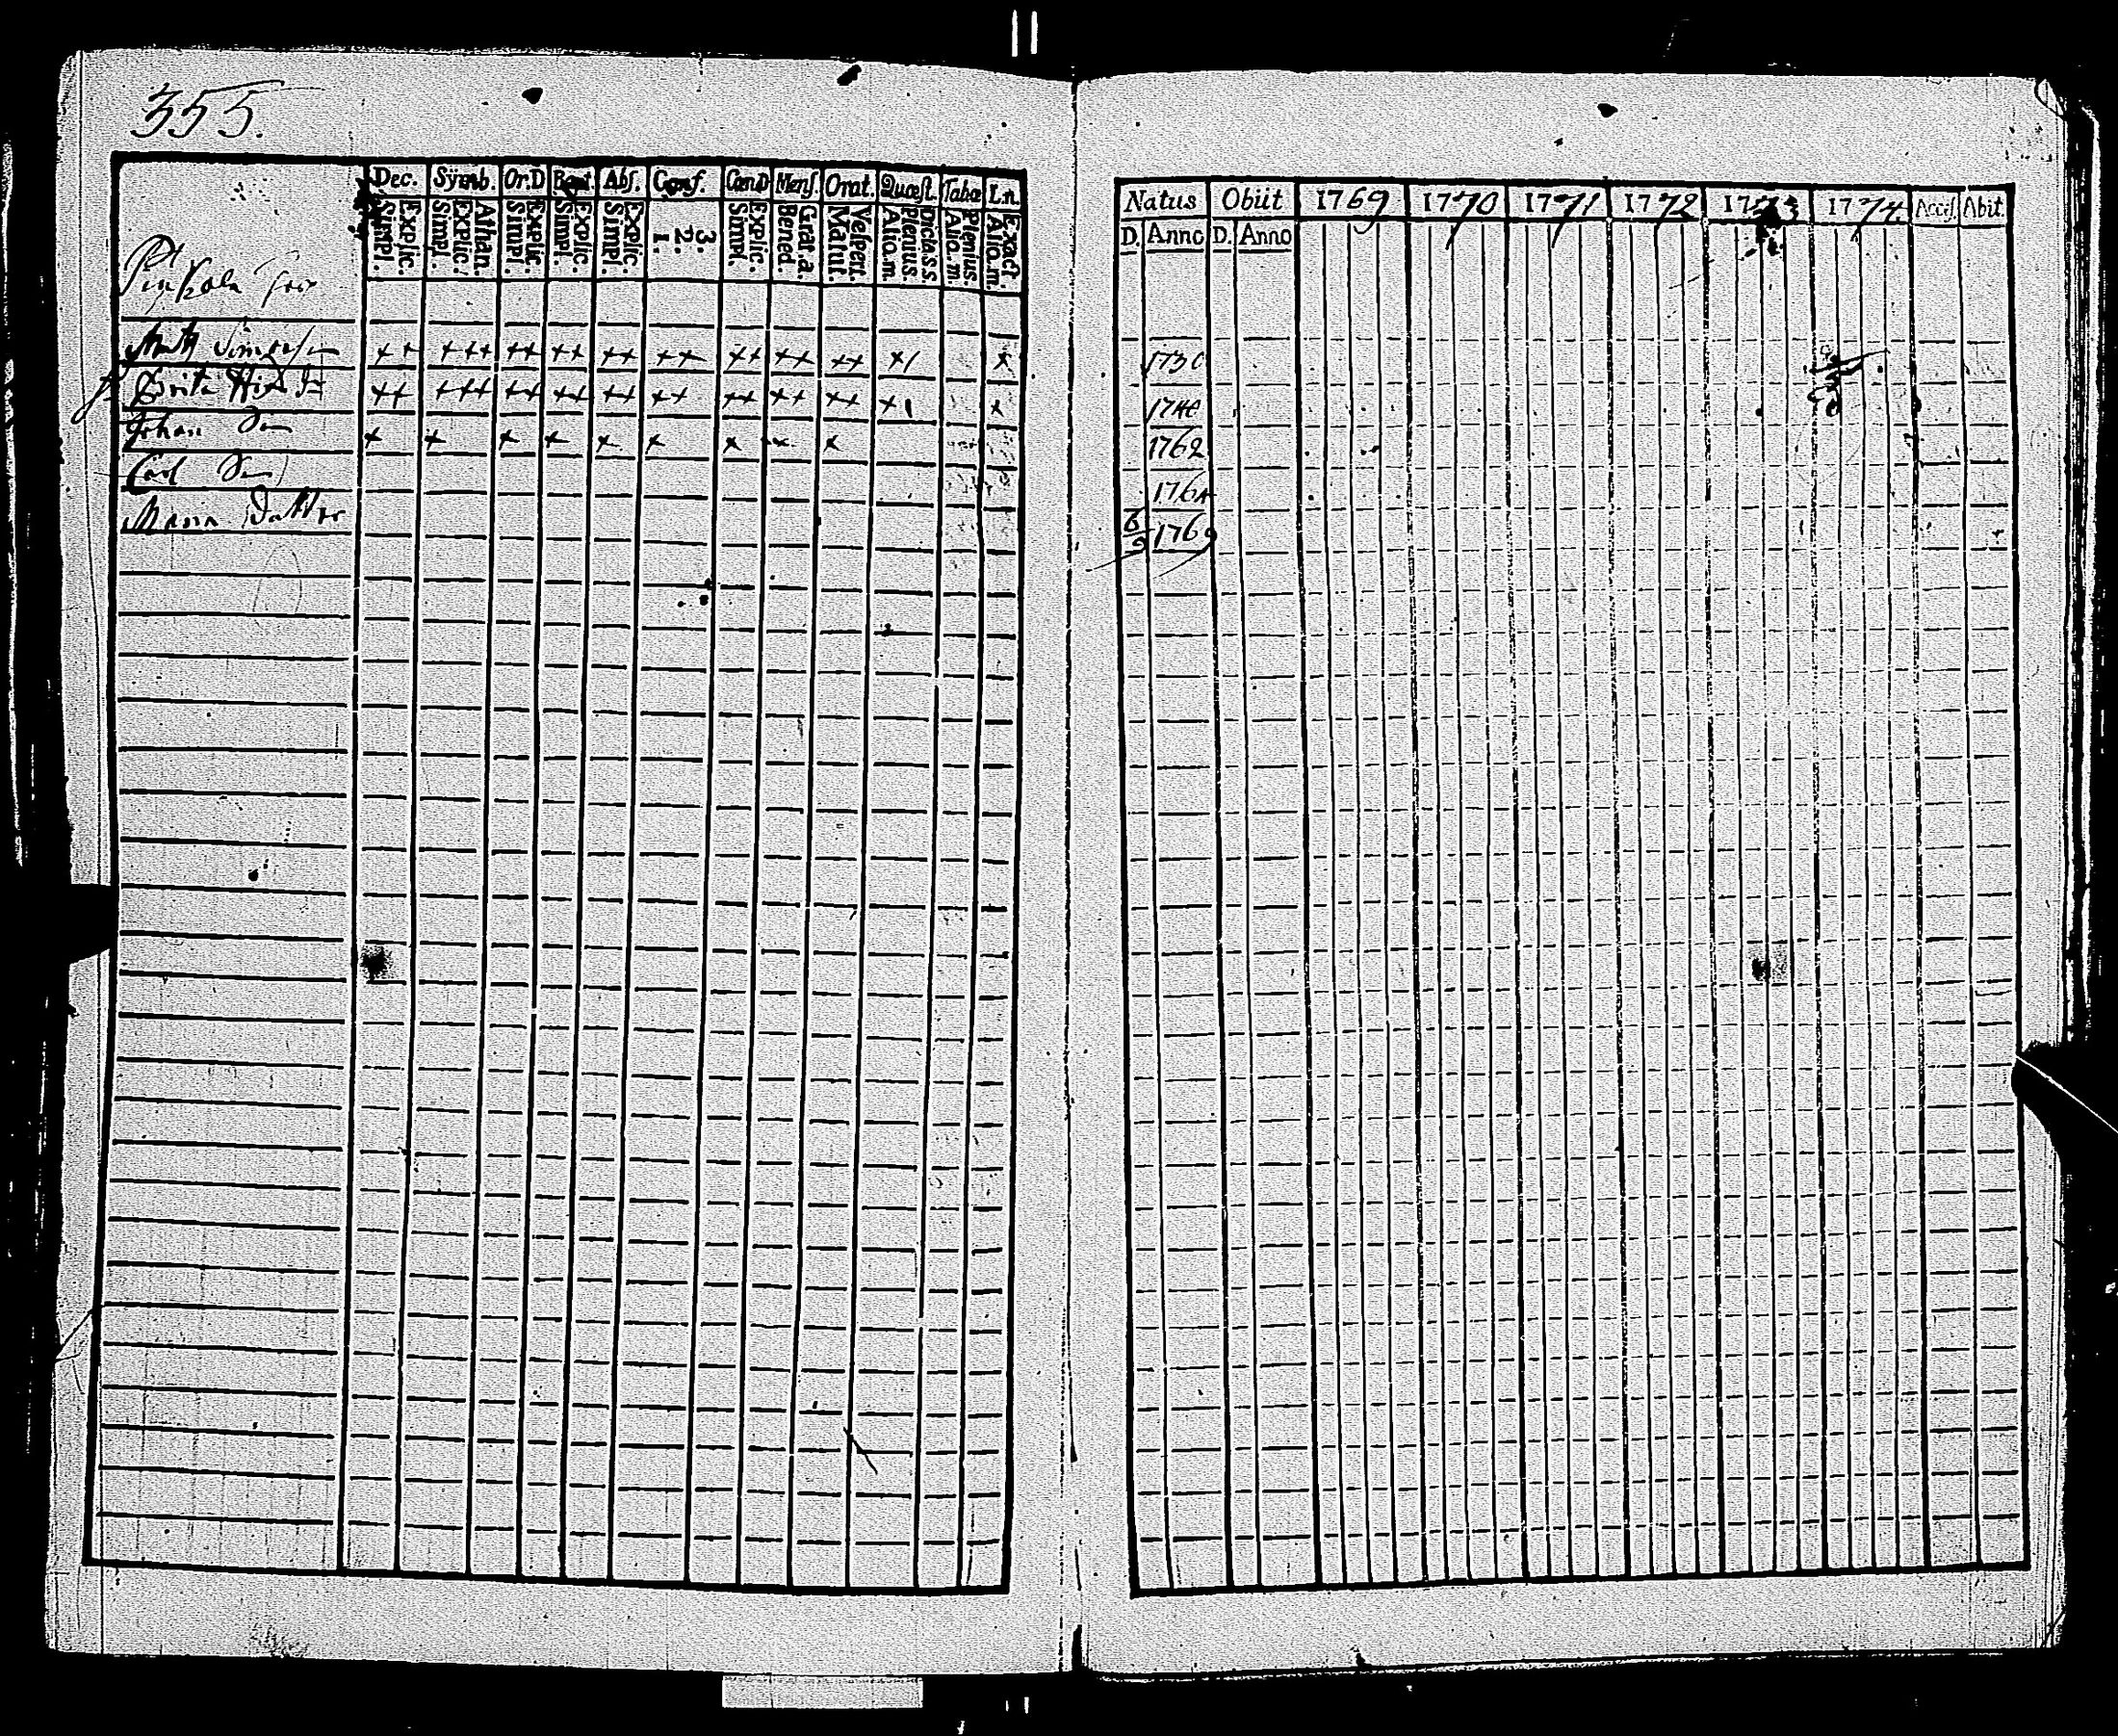 355.
Dec. Symb. Or.D Bapt. Abs. Conf. Cœn.D Mens. Orat. Quæst. Tabæ L.n.
Simpl. Explic. Simpl. Explic. Athan. Simpl. Explic. Simpl. Explic. Simpl. Explic. 1. 2. 3. Simpl. Explic. Bened. Grat.a. Matut. Vespert. Alio.m. Plenius. Dicta.s.s. Alio.m. Plenius. Alio.m. Exact.
Natus Obiit 1769 1770 1771 1772 1773 1774. Accis. Abit.
D. Anno D. Anno
++ +++ ++ ++ ++ ++ ++ ++ ++ +1 + 1730
Brita ++ +++ ++ ++ ++ ++ ++ ++ ++ +1 + 1740
Johan Son + + + + + + + + + 1762
Carl Son 1764
Maria Dotter 6/9 1769